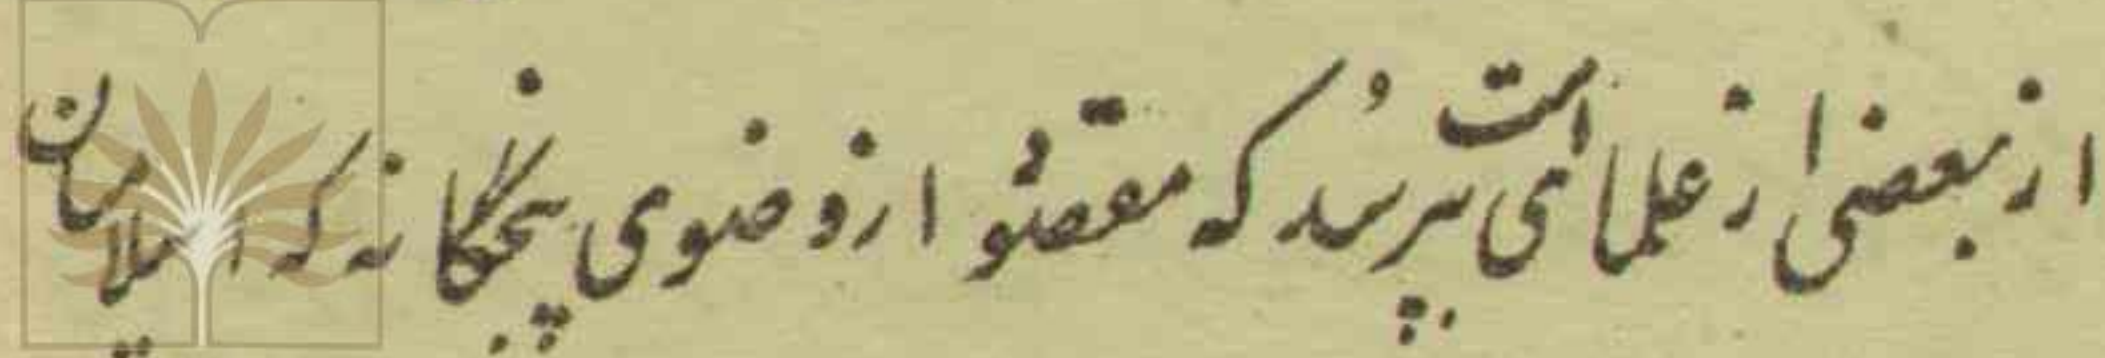 از بعضی از علمای امت پرسُد که مقصو از وضوی پنجگانه که اسلامیان